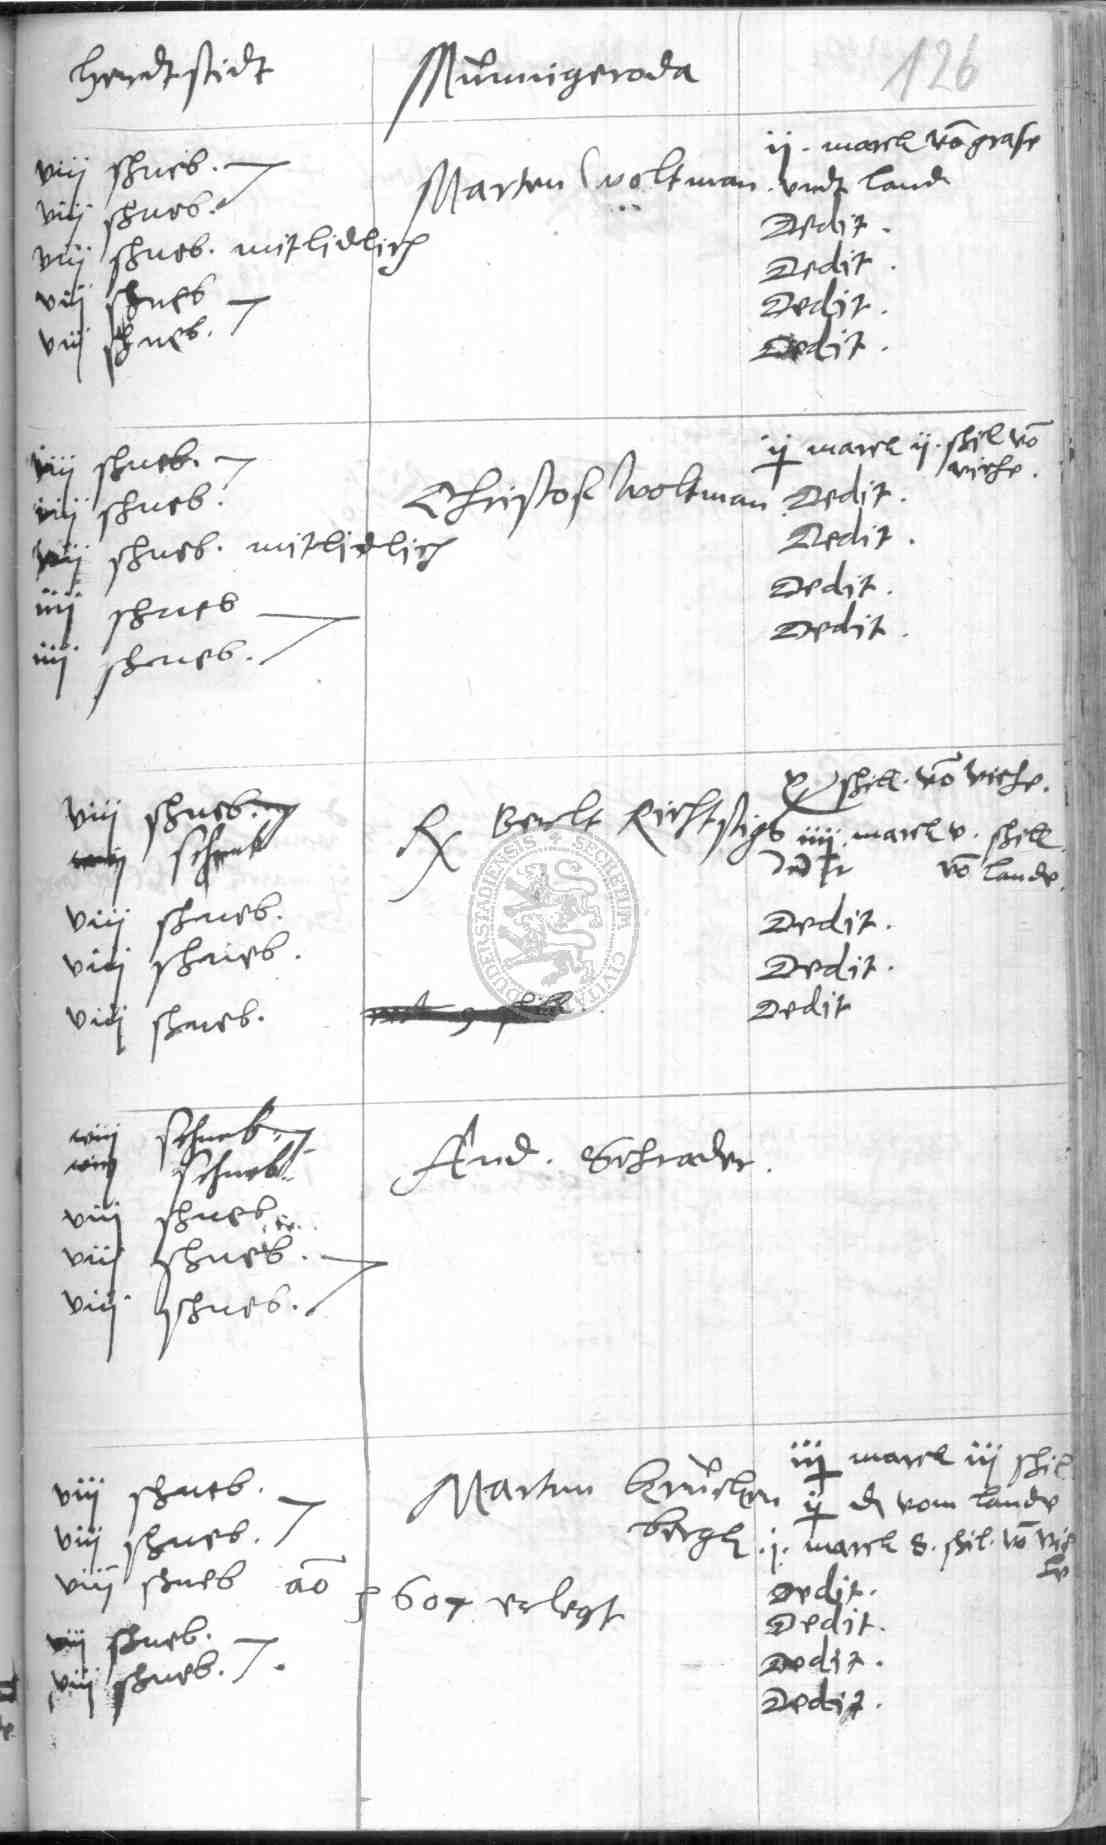 Herdtstidt Minnigeroda 126
viij schneb.
viij schneb.
viij schneb. mitlidlich
viij schneb
viij schneb.
Marten Woltman.
ij. marck vō grase
vndt land
Dedit.
Dedit.
Dedit.
Dedit.
viij schneb.
viij schneb.
viij schneb. mitlidlich
iiij schneb
iiij schneb.
Christof Woltman
ij marck ij. shil vō
viehe.
Dedit.
Dedit.
Dedit.
Dedit.
viij schneb.
viij schneb
viij schneb.
viij schneb.
viij schneb.
Berlt Richtstigs
shill. vō viehe.
iiij. marck v. shill
vō lande.
Dedit.
Dedit.
Dedit
SECRETUM CIVITA DUDERSTADIENSIS
viij schneb.
viij schneb.
viij schneb
viij schneb.
viij schneb.
And. Schrader.
viij schneb.
viij schneb.
viij schneb aō 1607 erlegt
viij schneb.
viij schneb.
Martin Krucken
bergk
iij marck iij shil
ij d vom lande
j. marck 8. shil. vō vie
he
Dedit.
Dedit.
Dedit.
Dedit.